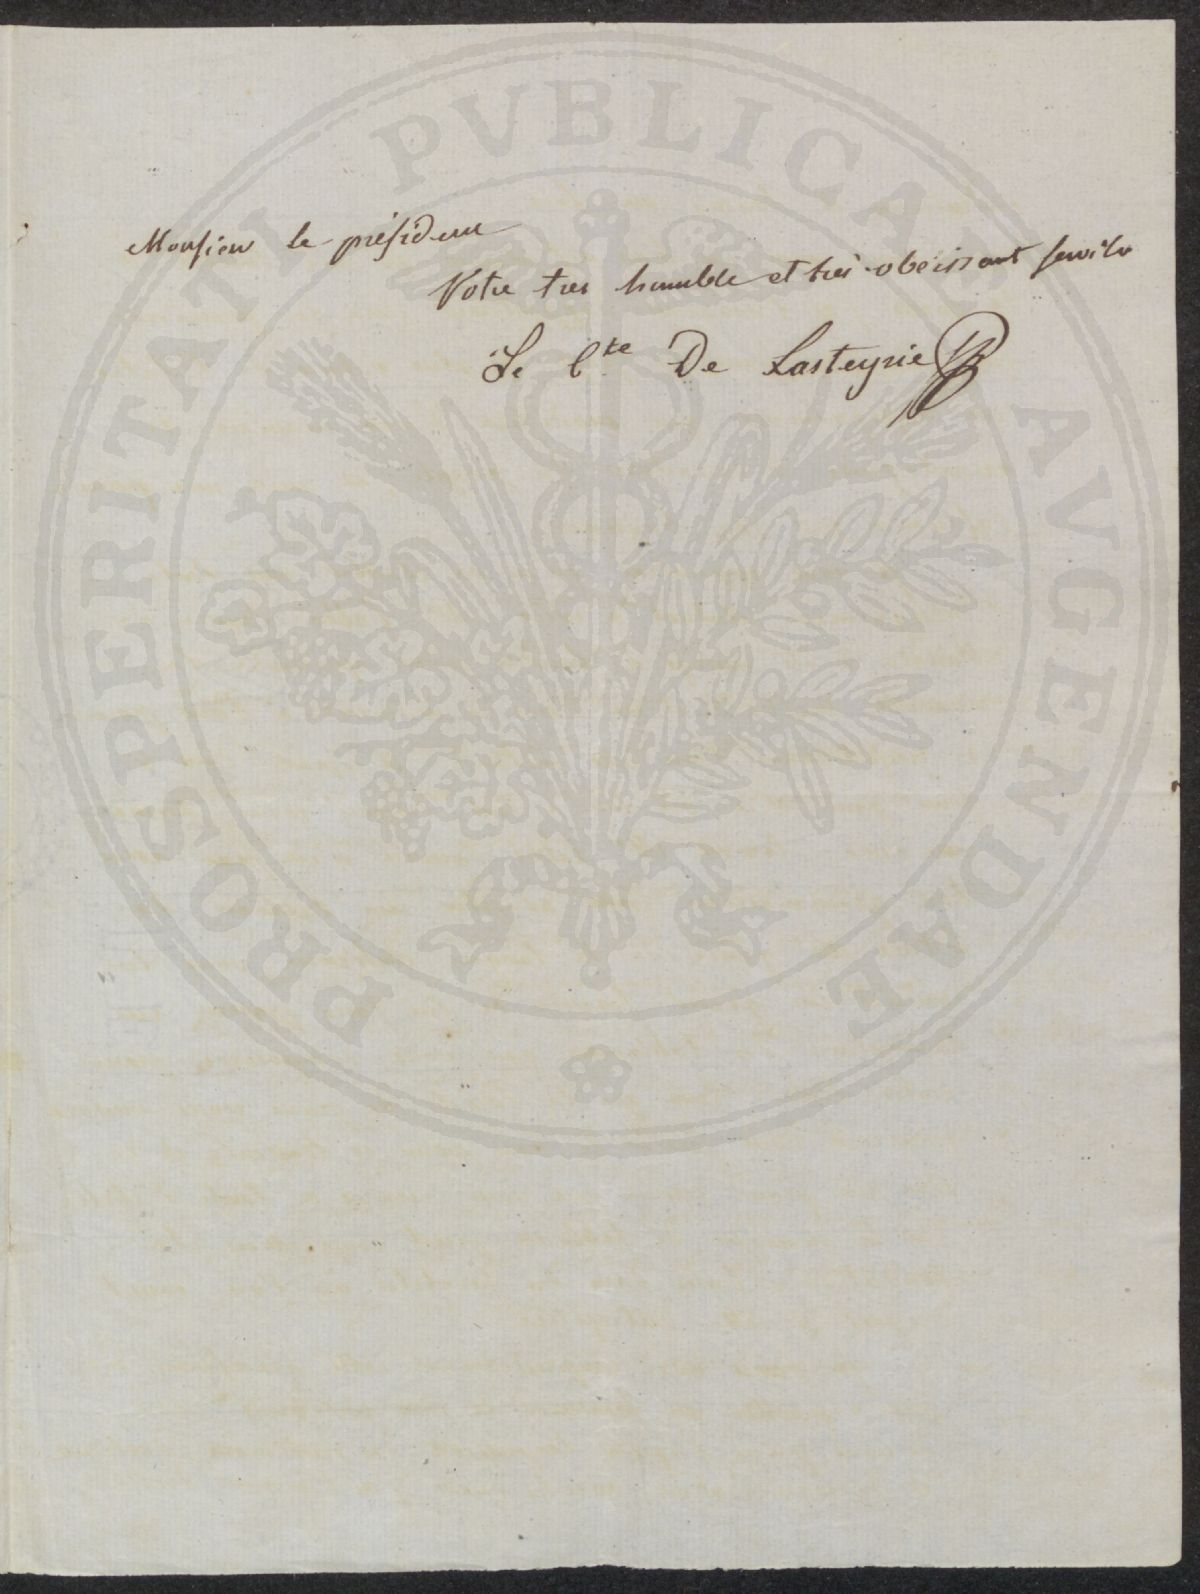 Monsieur le président
Votre tres humble et tres obeissant servitr
Le Cte De Lasteyrie
PROSPERITATI PVBLICAE AVGENDAE